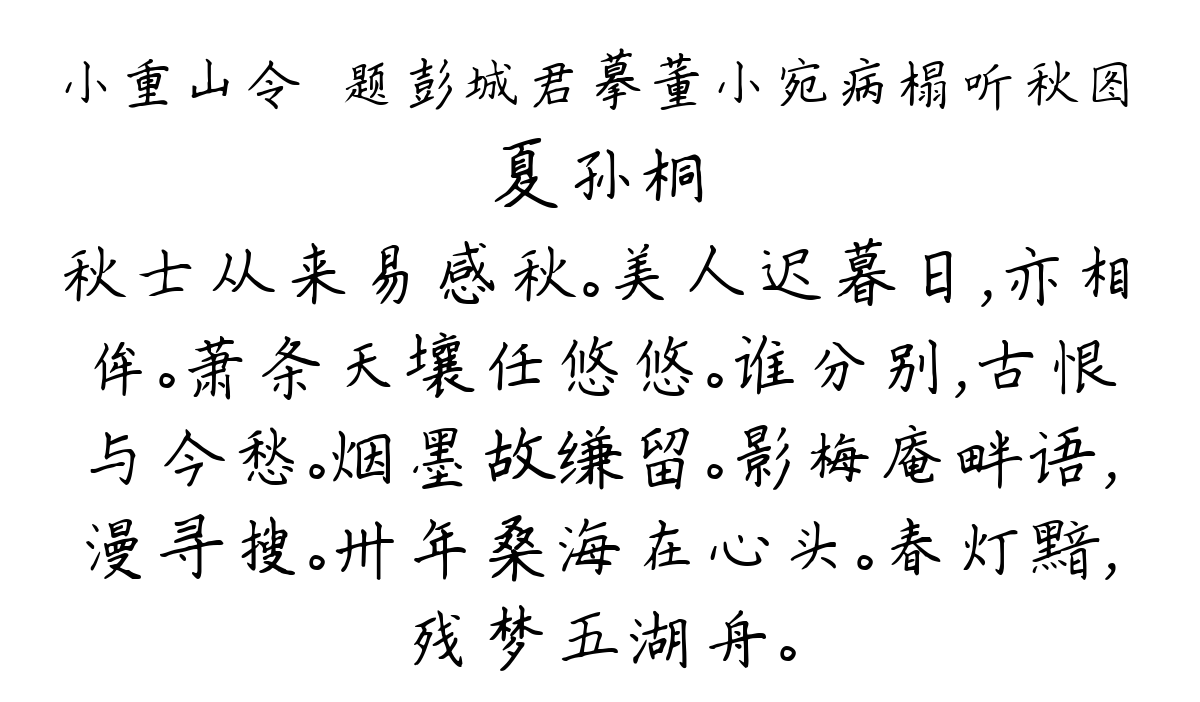 小重山令 题彭城君摹董小宛病榻听秋图
夏孙桐
秋士从来易感秋。美人迟暮日,亦相
侔。萧条天壤任悠悠。谁分别,古恨
与今愁。烟墨故缣留。影梅庵畔语,
漫寻搜。卅年桑海在心头。春灯黯,
残梦五湖舟。